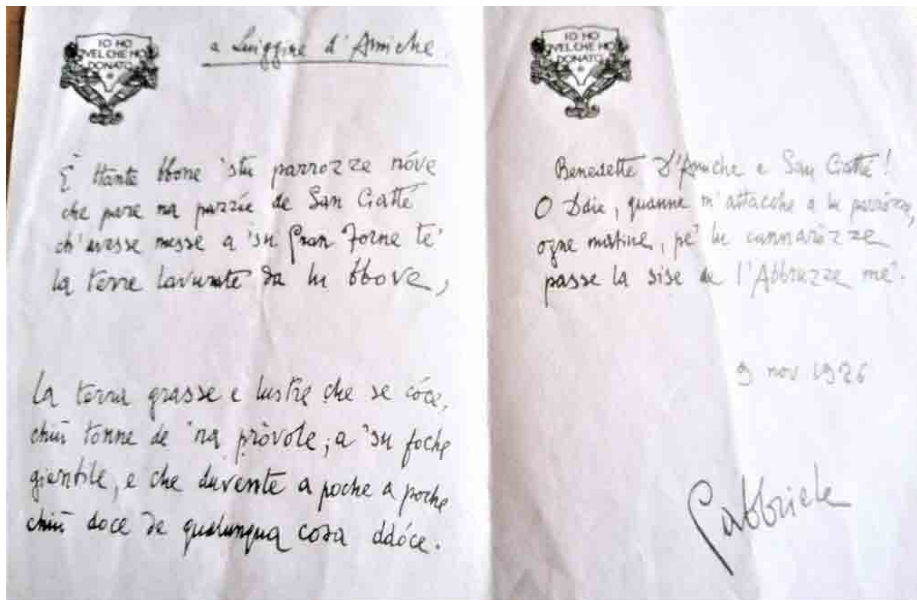 IO HO
QVEL CHE HO
DONATO
a Luiggine d'Amiche
È ttante bbone 'stu parrozze nóve
che pare na pazzíe de San Ciatté
ch'avesse messe a 'su gran forne té
la terre lavurate da lu bbove,
La terra grasse e lustre che se cóce,
chiù tonne de 'na pròvole, a 'su foche
gientile, e che duvente a poche a poche
chiù doce de qualunqua cosa ddóce.
IO HO
QVEL CHE HO
DONATO
Benedette D'Amiche e San Ciatté!
O Ddie, quanne m'attacche a lu parròzze,
ogne matine, pe' lu cannaròzze
passe la sise de l'Abbruzze mé.
9 nov 1926
Gabbriele